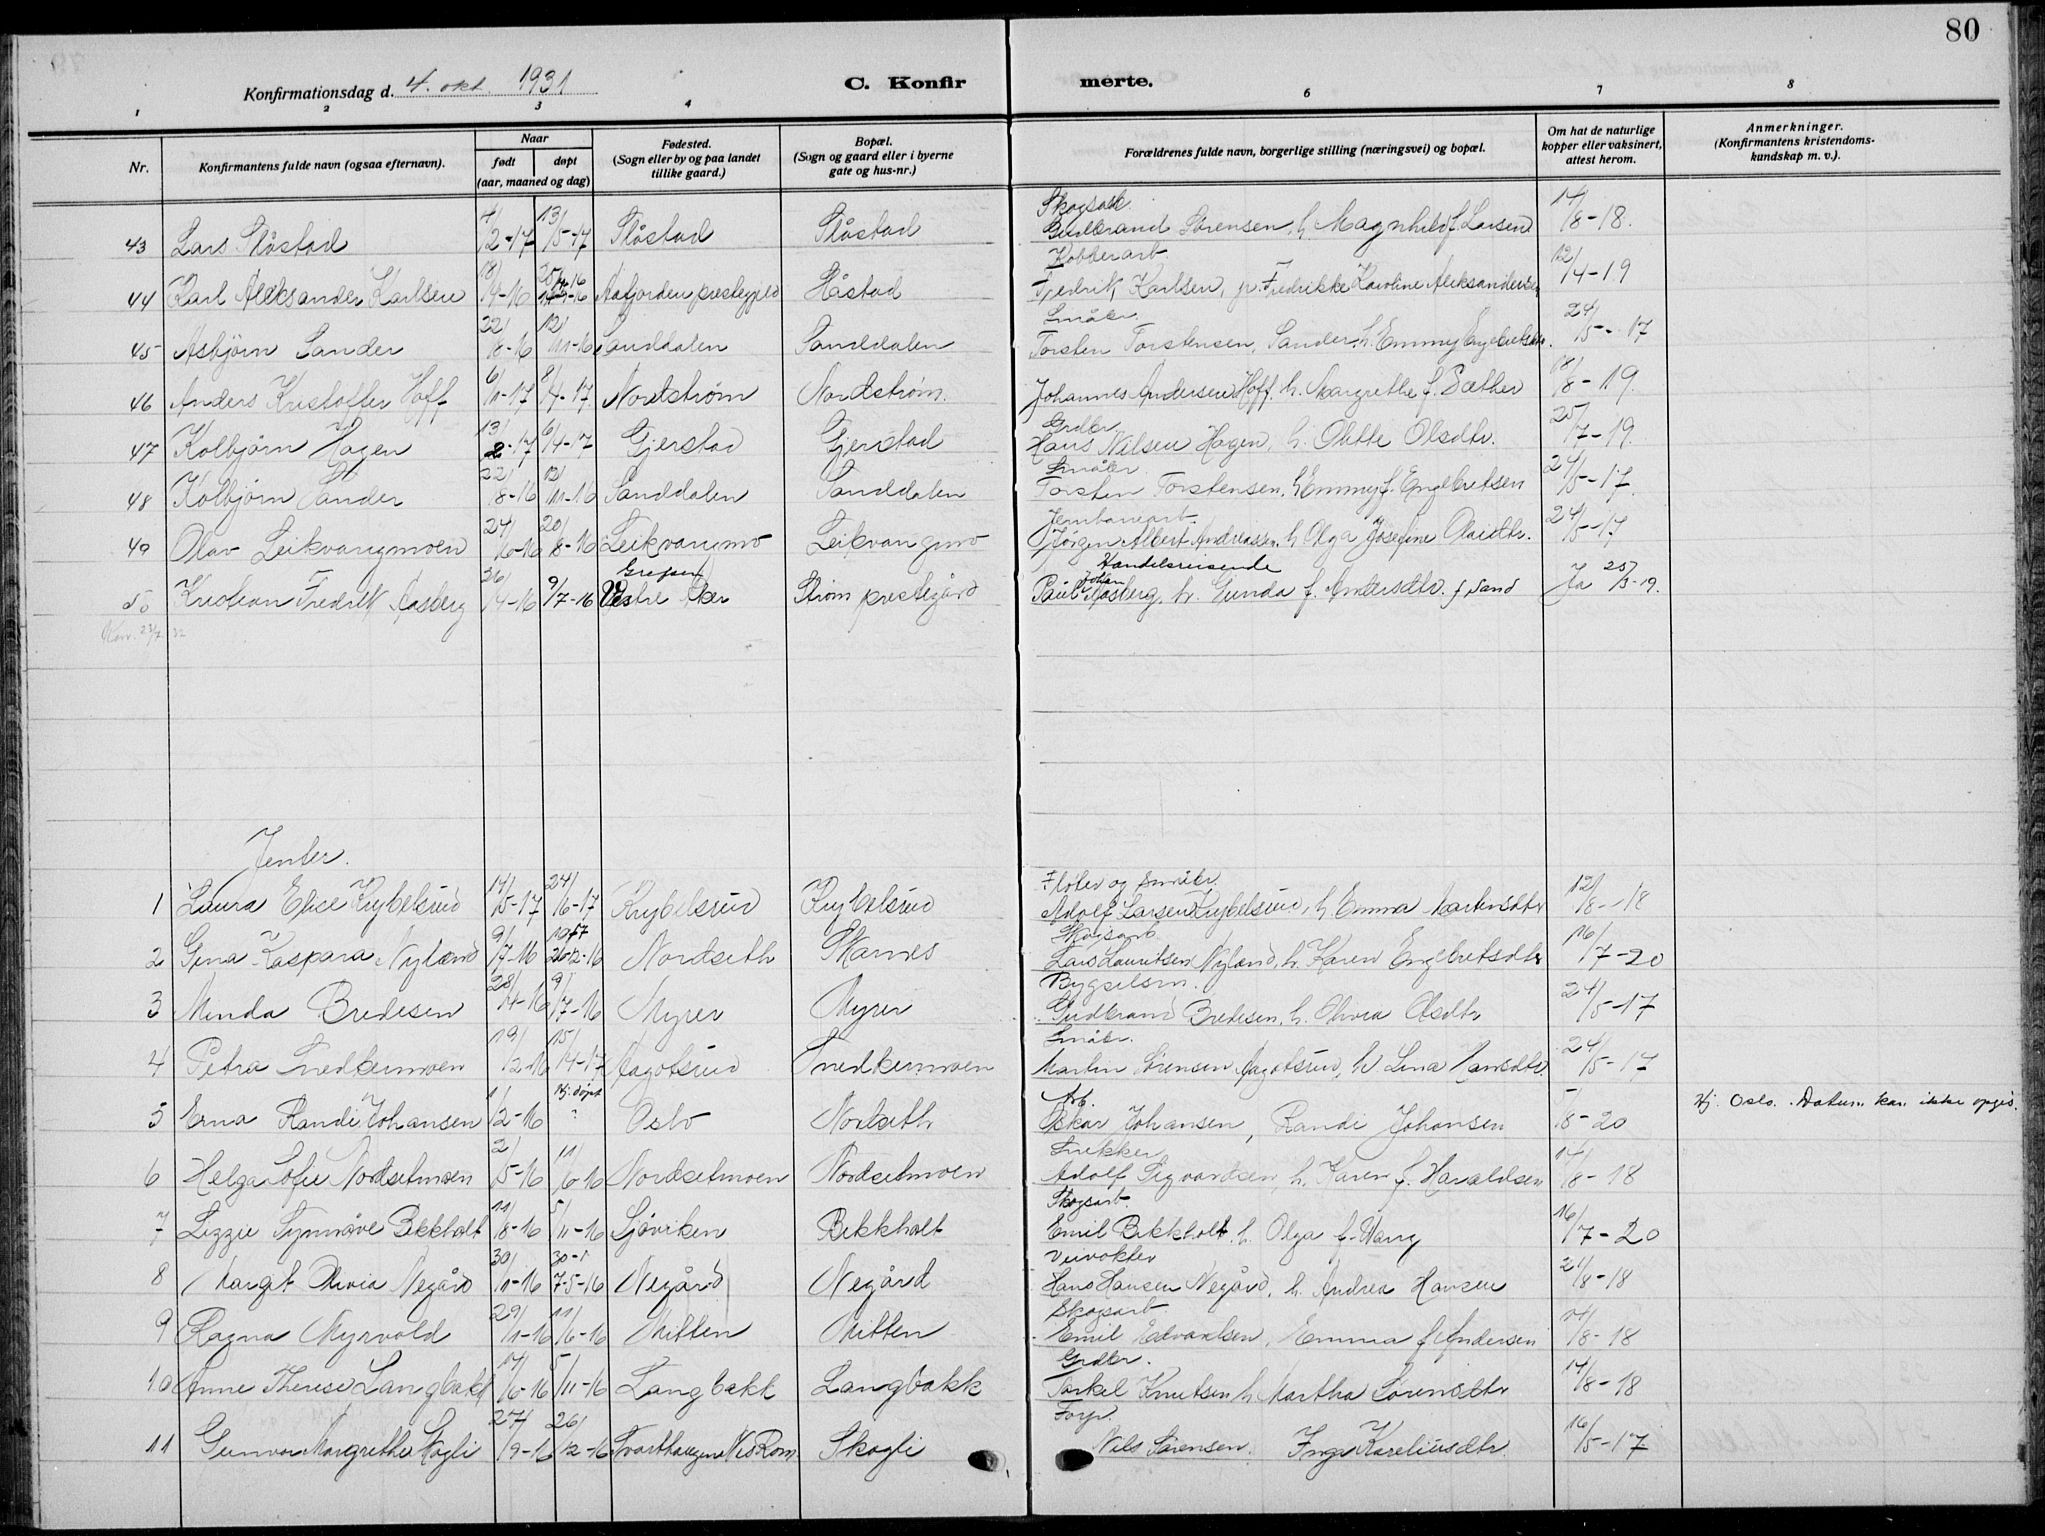 80
Konfirmationsdag d. 4. okt. 1931
C. Konfir merte.
1 2 3 4 6 7 8
Nr. Konfirmantens fulde navn (ogsaa efternavn). Naar født døpt (aar, maaned og dag) Fødested. (Sogn eller by og paa landet tillike gaard.) Bopæl. (Sogn og gaard eller i byerne gate og hus-nr.) Forældrenes fulde navn, borgerlige stilling (næringsvei) og bopæl. Om hat de naturlige kopper eller vaksinert, attest herom. Anmerkninger. (Konfirmantens kristendoms-kundskap m. v.).
Skogsarb.
43 Lars Slåstad 4/2-17 13/5-17 Slåstad Slåstad Gudbrand Sørensen, h. Magnhild f. Larsen 14/8-18.
Kobberarb.
44 Karl Aleksander Karlsen 18/4-16 Aafjorden prestegjeld Håstad Fredrik Karlsen, Fredrikke Karoline Aleksandersen 12/4-19
Småbr.
45 Asbjørn Sander 22/8-16 12/11-16 Sanddalen Sanddalen Torsten Torstensen, Sander, h. Emmy Engebretsdtr. 24/5-17
46 Anders Kristoffer Hoff 6/10-17 8/4-17 Nordstrøm Nordstrøm. Johannes Andersen Hoff. h. Margrethe f. Sæther 18/8-19.
Grdbr.
47 Kolbjørn Hagen 13/2-17 6/4-17 Gjerstad Gjerstad Hans Nilsen Hagen, h. Olette Olsdtr. 25/7-19.
Småbr.
48 Kolbjørn Sander 22/8-16 12/11-16 Sanddalen Sanddalen Torsten Torstensen, h. Emmy f. Engebretsen 24/5-17.
Jernbanearb.
49 Olav Leikvangmoen 24/6-16 20/8-16 Leikvangmo Leikvangmo Jørgen Albert Andreassen, h. Olga Josefine Olsdtr. 24/5-17
Grefsen Handelsreisende
50 Kristian Fredrik Aasberg 26/4-16 9/7-16 Vestre Aker Strøm prestegård Paul Johan Aasberg, h. Gunda f. Andersdtr. f. Sand Ja 25/3-19.
Kon. 23/7 32
Jenter.
Fløter og småbr.
1 Laura Elise Krybelsrud 14/5-17 24/6-17 Krybelsrud Krybelsrud Adolf Larsen Krybelsrud, h. Emma Martinsdtr 12/8-18
Skogsarb.
2 Gina Kaspara Nyland 9/7-16 26-12-16 Nordseth Skarnes Lars Lauritsen Nyland, h. Karen Engebretsdtr 16/7-20
Bygselsm.
3 Minda Bredesen 28/4-16 9/7-16 Myrer Myrer Gudbrand Bredesen, h. Olivia Olsdtr 24/5-17
Småbr.
4 Petra Snedkermoen 19/2-16 15/4-17 Aagotsrud Snedkermoen Martin Sørensen Aagotsrud, h. Lina Hansdtr. 24/5-17
Arb.
5 Erna Randi Johansen 1/2-16 Hj. døpt Oslo Nordseth Oskar Johansen, Randi Johansen 8-20 Hj. Oslo. Datum kan ikke opgis.
Snekker
6 Helga Sofie Nordsetmoen 2/5-16 11/6-16 Nordsetmoen Nordsetmoen Adolf Sigvardsen, h. Karen f. Haraldsen 14/8-18
Skogsarb.
7 Lizzie Synnøve Bekkholt 11/8-16 5/11-16 Sjøviken Bekkholt Emil Bekkholt, h. Olga f. Wang 16/7-20
Veivokter
8 Margit Olivia Negård 30/10-16 Negård Negård Hans Hansen Negård, h. Andrea Hansen 21/8-18
Skogsarb.
9 Ragna Myrvold 29/1-16 11/6-16 Mitten Mitten Emil Edvardsen, Emma f. Andersen 14/8-18
Grdbr.
10 Anne Therese Langbakk 14/6-16 5/11-16 Langbakk Langbakk Torkel Knutsen h. Martha Sørensdtr 14/8-18
Forp.
11 Gunvor Margrethe Skogli 27/9-16 26/12-16 Svarthaugen Nes Rom. Skogli Nils Sørensen, Inga Kareliusdtr. 16/5-17